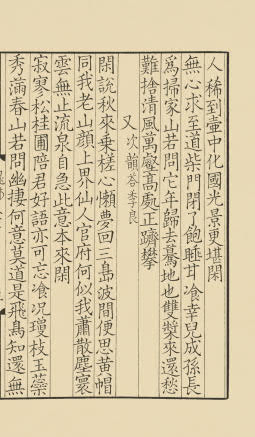 人稀到壷中化國光景更堪閑
無心求至道柴門閉了飽睡甘飡幸兒成孫長
爲掃家山若問它年歸去驀地也雙槳來還愁
難捨清風萬壑髙處正躋攀
又 次前答李良
閑説秋來乗槎心懶夢回三島波間便思黄帽
同我老山顔上界仙人官府何似我蕭散塵寰
雲無止流泉自急此意本來閑
寂寥松桂圃陪君好語亦可忘飡况瓊枝玉蘂
秀滿春山若問幽棲何意莫道是飛鳥知還無